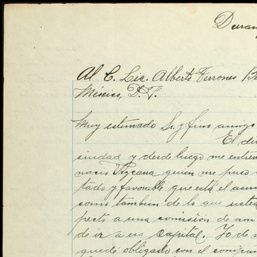 Duran
Al C. Lic. Alberto Terrones B
México, D. F.
Muy estimado Sr. y fino amigo
El d
ciudad y desde luego me entre
quien me puso
tado y favorable que está el
como tambien de lo que
pecto a una comisión de
de ir a esa Capital. Yo de
quedé obligado con el